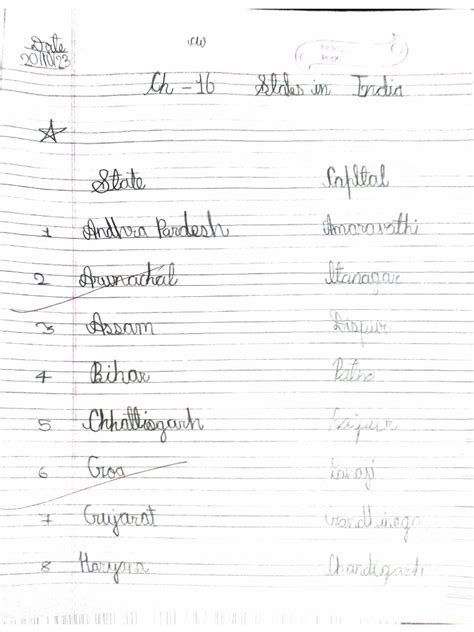 Date CW
20/10/23
Ch - 16 States in India
State Capital
1 Andhra Pardesh Amaravathi
2 Arunachal Itanagar
3 Assam Dispur
4 Bihar Patna
5 Chhattisgarh Raipur
6 Goa
7 Gujarat Gandhinaga
8 Haryna Chandigarh